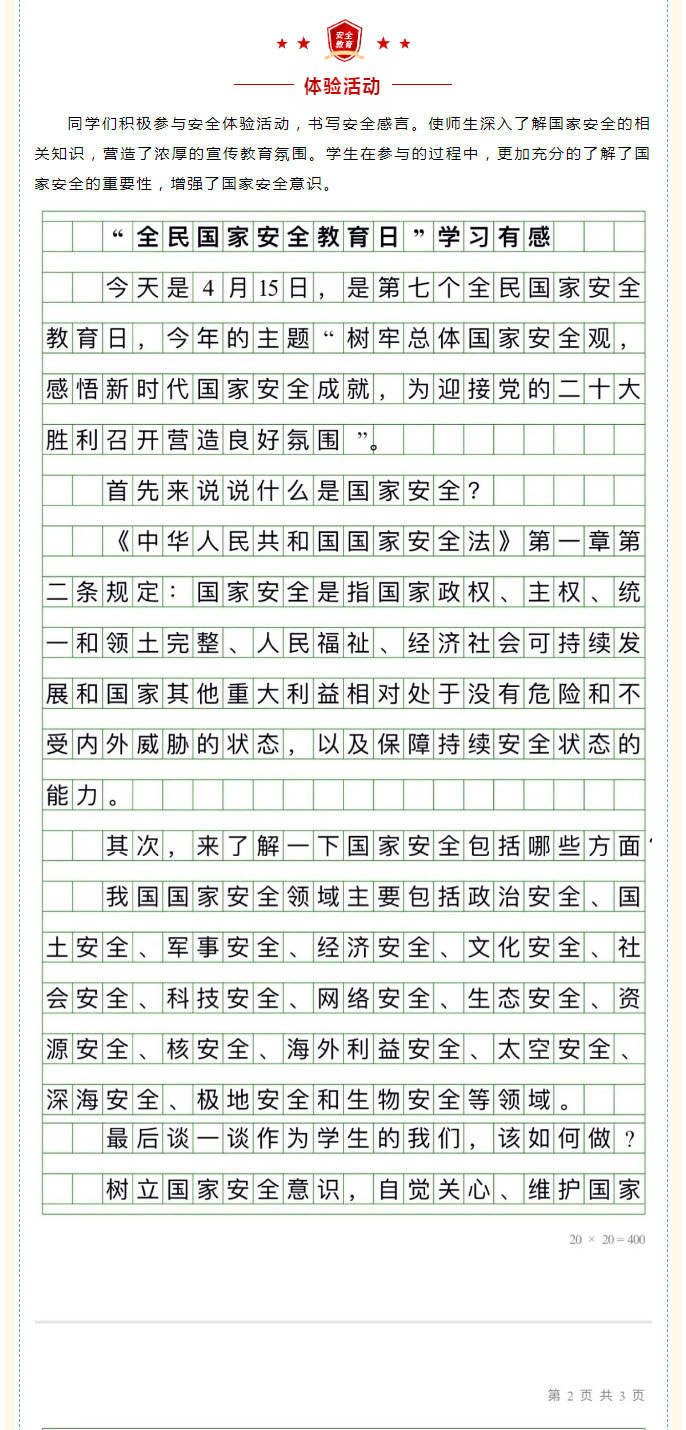 安全
教育
体验活动
同学们积极参与安全体验活动，书写安全感言。使师生深入了解国家安全的相
关知识，营造了浓厚的宣传教育氛围。学生在参与的过程中，更加充分的了解了国
家安全的重要性，增强了国家安全意识。
“全民国家安全教育日”学习有感
今天是4月15日，是第七个全民国家安全
教育日，今年的主题“树牢总体国家安全观，
感悟新时代国家安全成就，为迎接党的二十大
胜利召开营造良好氛围”。
首先来说说什么是国家安全？
《中华人民共和国国家安全法》第一章第
二条规定：国家安全是指国家政权、主权、统
一和领土完整、人民福祉、经济社会可持续发
展和国家其他重大利益相对处于没有危险和不
受内外威胁的状态，以及保障持续安全状态的
能力。
其次，来了解一下国家安全包括哪些方面？
我国国家安全领域主要包括政治安全、国
土安全、军事安全、经济安全、文化安全、社
会安全、科技安全、网络安全、生态安全、资
源安全、核安全、海外利益安全、太空安全、
深海安全、极地安全和生物安全等领域。
最后谈一谈作为学生的我们，该如何做？
树立国家安全意识，自觉关心、维护国家
20 × 20 = 400
第 2 页 共 3 页